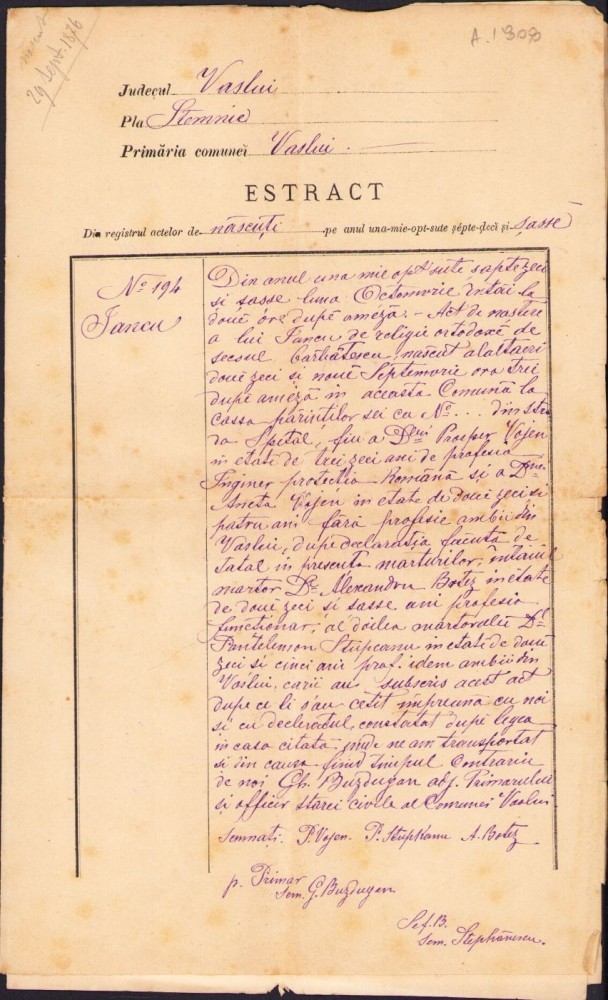 născut
29 Sept. 1876
A. 1308
Judeçul Vaslui
Pla Stemnic
Primăria comuneĭ Vaslui.
ESTRACT
Din registrul actelor de născuți pe anul una-mie-opt-sute șépte-decĭ și șasse
No 194
Iancu
Din anul una mie opt sute sapte zeci
si sasse luna Octomvrie întâi la
doue ore dupe améza. - Act de nastere
a lui Iancu, de religie ortodoxĕ de
secsul bărbătescu, nascut alaltaeri
doue zeci si nouĕ Septemvrie ora trei
dupe améză in aceasta Comună la
cassa părintilor sei cu No ... din stra
da Spital, fiu a Dlui Prosper Vojen
in etate de trei zeci ani de profesie
Inginer protectia Română si a Dnei
Aneta Vojen in etate de doue zeci si
patru ani fără profesie ambii din
Vaslui, dupe declaratia facuta de
tatal in presenta marturilor, intaiul
martor Dl Alexandru Botez in etate
de doue zeci si sasse ani profesia
functionar; al doilea martor alu Dl
Pantelemon Stupcanu in etate de doue
zeci si cinci ani prof. idem ambii din
Vaslui, carii au subscris acest act
dupe ce li s'au cetit impreună cu noi
si cu declaratul, constatat dupe legea
in casa citată unde ne am transportat
si din causa fiind timpul Contrariu
de noi Gh. Buzdugan adj. Primarului
si officir starei civile al Comunei Vaslui
semnați. P. Vojen. P. Stupkanu A. Botez
p. Primar
sem. G. Buzdugan
Șef. B.
sem. Stephănescu.